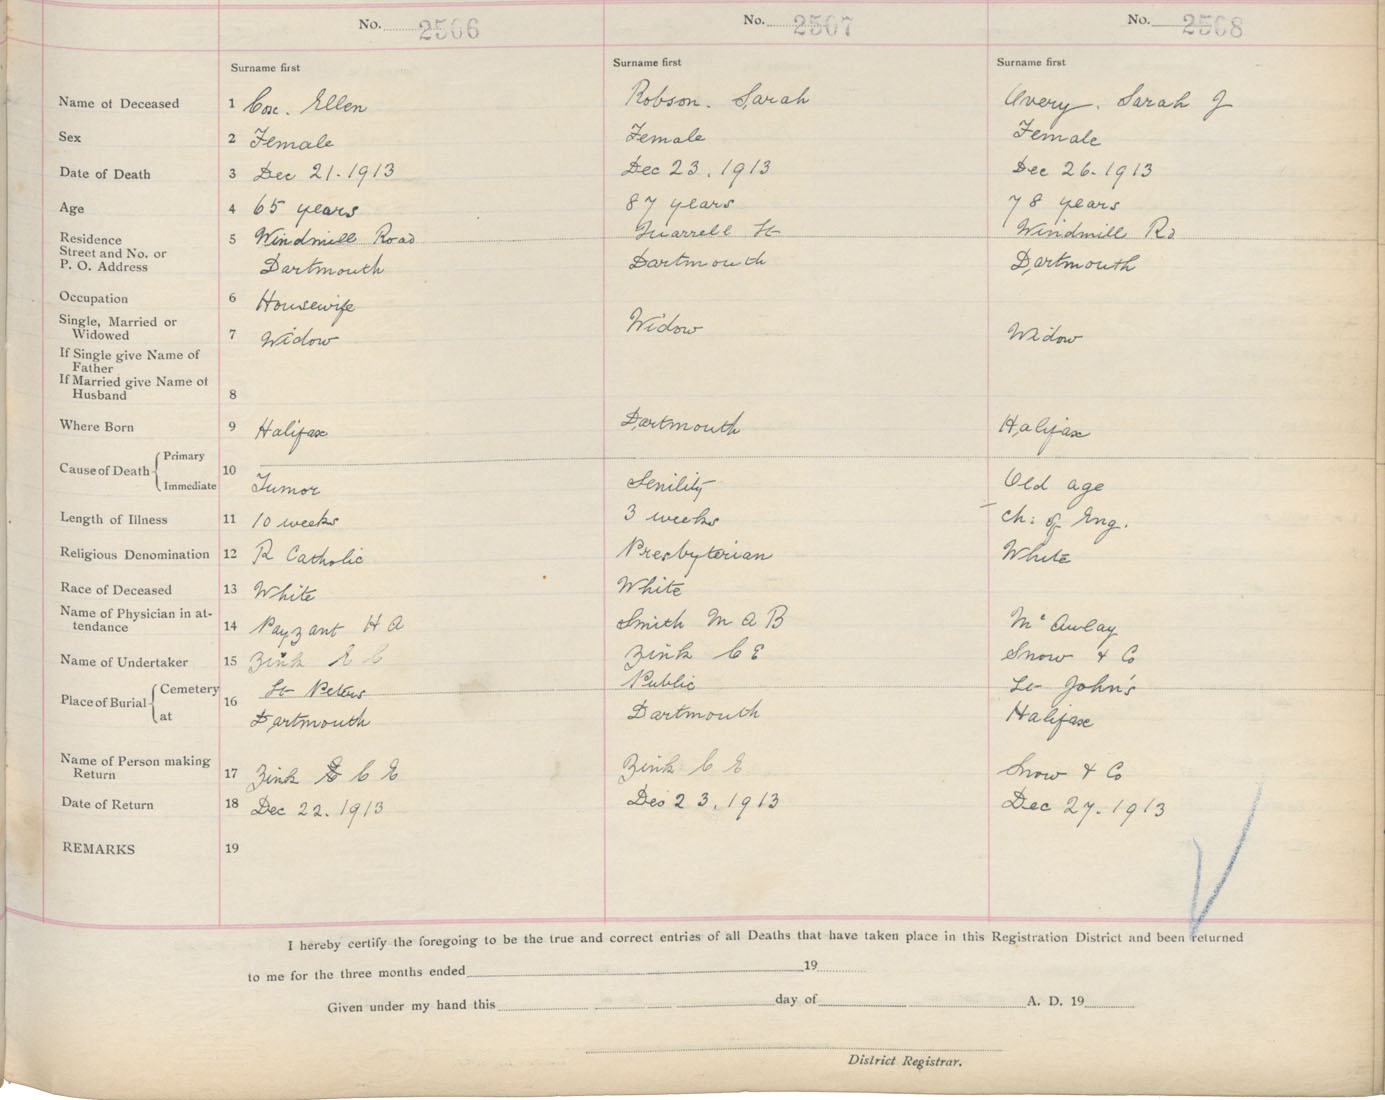 No. 2506 No. 2507 No. 2508
Surname first Surname first Surname first
Name of Deceased 1 Cox. Ellen Robson. Sarah Avery. Sarah J
Sex 2 Female Female Female
Date of Death 3 Dec 21. 1913 Dec 23. 1913 Dec 26. 1913
Age 4 65 years 87 years 78 years
Residence 5 Windmill Road St Windmill Rd
Street and No. or
P. O. Address Dartmouth Dartmouth Dartmouth
Occupation 6 Housewife
Single, Married or
Widowed 7 Widow Widow Widow
If Single give Name of
Father
If Married give Name of
Husband 8
Where Born 9 Halifax Dartmouth Halifax
Cause of Death Primary 10
Immediate Tumor Senility Old age
Length of Illness 11 10 weeks 3 weeks Ch: of Eng.
Religious Denomination 12 R Catholic Presbyterian White
Race of Deceased 13 White White
Name of Physician in at-
tendance 14 Payzant H A Smith M A B McAulay
Name of Undertaker 15 Zink E C Zink C E Snow & Co
Place of Burial Cemetery 16 St Peters Public St John's
at Dartmouth Dartmouth Halifax
Name of Person making
Return 17 Zink C E Zink C E Snow & Co
Date of Return 18 Dec 22. 1913 Dec 23. 1913 Dec 27. 1913
REMARKS 19
I hereby certify the foregoing to be the true and correct entries of all Deaths that have taken place in this Registration District and been returned
to me for the three months ended 19
Given under my hand this day of A. D. 19
District Registrar.